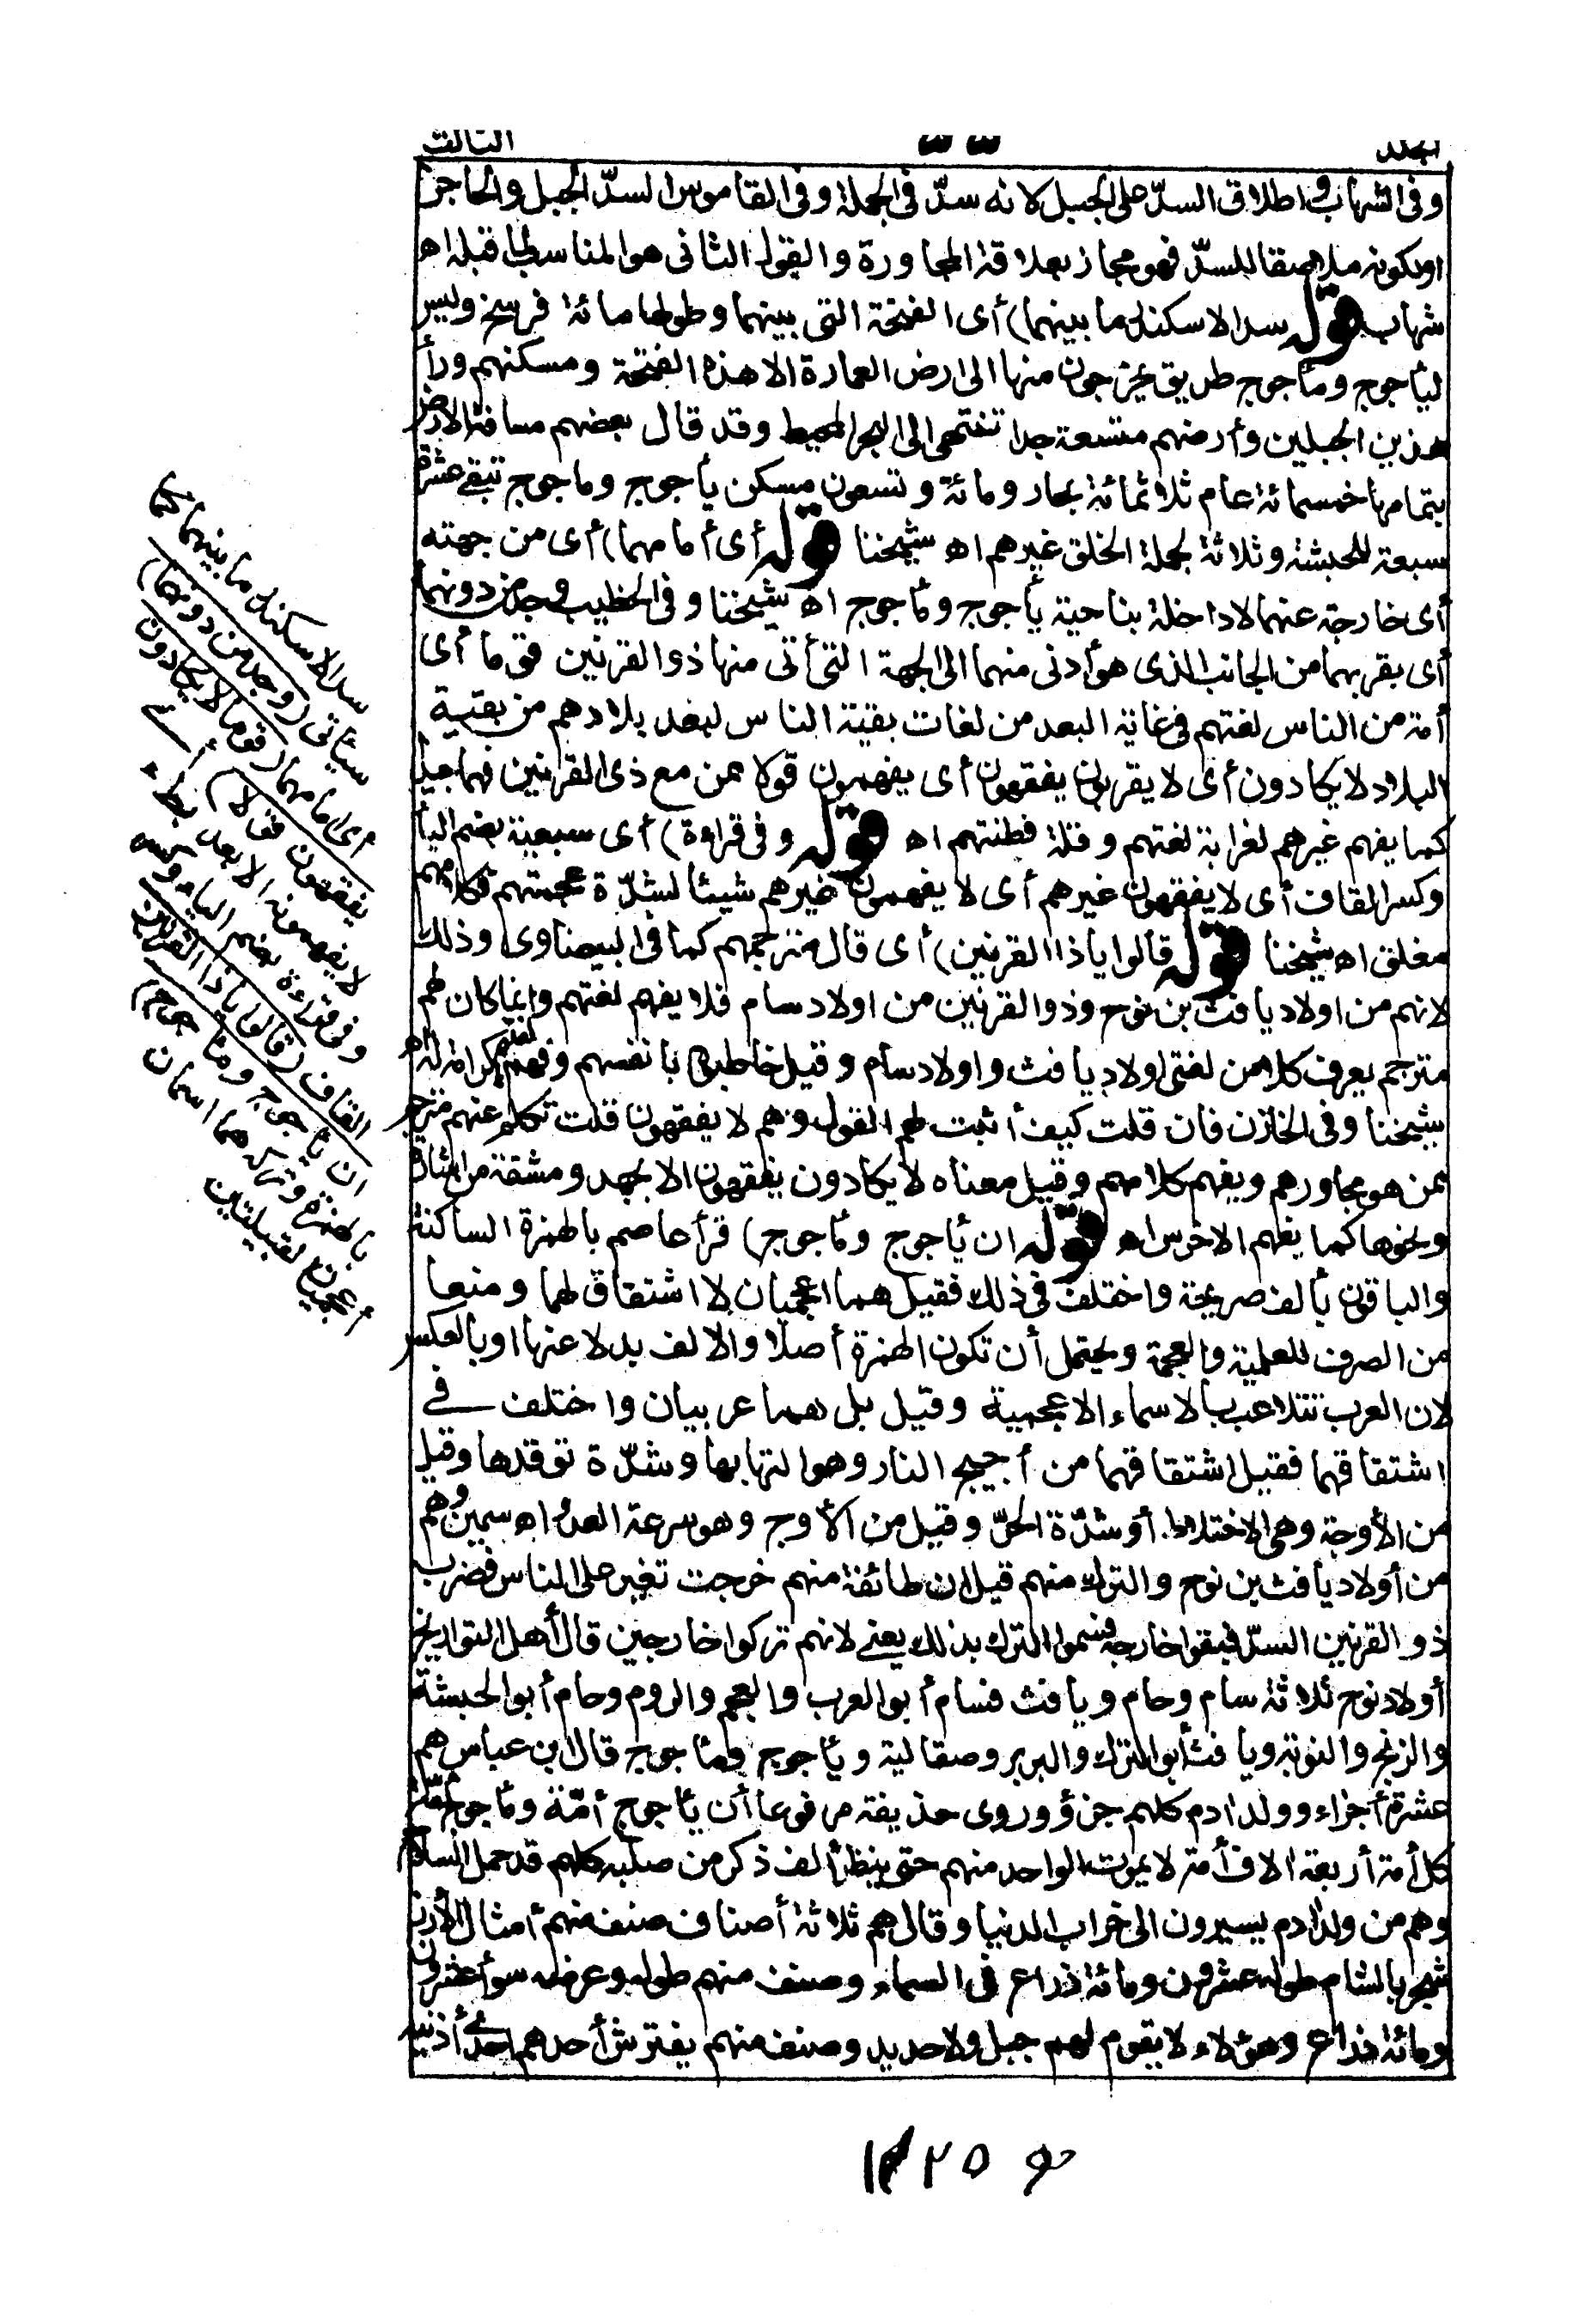 المجلد
الثالث
وفى الشهاب و اطلاق السدّ على الجبل لانه سدّ فى الجملة وفى القاموس السدّ الجبل والحاجز
اولكونه ملاصقا للسدّ فهو مجاز بعلاقة المجاورة والقول الثانى هو المناسب لما قبله اه
شهاب قوله سد الاسكندر ما بينهما) أى الفتحة التى بينهما وطولها مائة فرسخ وليس
ليأجوج ومأجوج طريق يخرجون منها الى ارض العمارة الا هذه الفتحة ومسكنهم ورأ
هذين الجبلين وأرضهم متسعة جدا تنتهى الى البحر المحيط وقد قال بعضهم مسافة الارض
بتمامها خمسمائة عام ثلاثمائة بحار ومائة وتسعون مسكن يأجوج وماجوج تبقى عشرة
سبعة للحبشة وثلاثة لجملة الخلق غيرهم اه شيخنا قوله أى أمامهما) أى من جهته
أى خارجة عنهما لا داخلة بناحية يأجوج ومأجوج اه شيخنا وفى الخطيب وجد من دونهما
أى بقربهما من الجانب الذى هو أدنى منهما الى الجهة التى أتى منها ذو القرنين قوما أى
أمة من الناس لغتهم فى غاية البعد من لغات بقية الناس لبعد بلادهم من بقية
البلاد لا يكادون أى لا يقربون يفقهون أى يفهمون قولا ممن مع ذى القرنين فهما جيدا
كما يفهم غيرهم لغرابة لغتهم وقلة فطنتهم اه قوله وفى قراءة) أى سبعية بضم اليأ
وكسر القاف أى لا يفقهون غيرهم أى لا يفهمون غيرهم شيئا لشدّة عجمتهم فكلامهم
مغلق اه شيخنا قوله قالوا يا ذا القرنين) أى قال مترجمهم كما فى البيضاوى وذلك
لانهم من اولاد يافث بن نوح وذو القرنين من اولاد سام فلا يفهم لغتهم وانما كان لهم
مترجم يعرف كلا من لغتى اولاد يافث و اولاد سام وقيل خاطبوه بانفسهم وفهم لغتهم كرامة له اه
شيخنا وفى الخازن فان قلت كيف أثبت لهم القول وهم لا يفقهون قلت تكلم عنهم مترجم
ممن هو مجاورهم ويفهم كلامهم وقيل معناه لا يكادون يفقهون الا بجهد ومشقة من اشارة
ونحوها كما يفهم الاخرس اه قوله ان يأجوج ومأجوج) قرأ عاصم بالهمزة الساكنة
والباقون بألف صريحة واختلف فى ذلك فقيل هما اعجميان لا اشتقاق لهما ومنعا
من الصرف للعلمية والعجمة ويحتمل أن تكون الهمزة أصلا والالف بدلا عنها او بالعكس
لان العرب تتلاعب بالاسماء الاعجمية وقيل بل هما عربيان واختلف فى
اشتقاقهما فقيل اشتقاقهما من أجيج النار وهو التهابها وشدّة توقدها وقيل
من الأوجة وهى الاختلاط أو شدّة الحرّ وقيل من الأوج وهو سرعة العدو اه سمين وهم
من أولاد يافث بن نوح والترك منهم قيل ان طائفة منهم خرجت تغير على الناس فضرب
ذو القرنين السدّ فبقوا خارجه فسموا الترك بذلك يعنى لانهم تركوا خارجين قال أهل التواريخ
أولاد نوح ثلاثة سام وحام ويافث فسام أبو العرب والعجم والروم وحام أبو الحبشة
والزنج والنوبة ويافث أبو الترك والبربر وصقالية ويأجوج ومأجوج قال ابن عباس هم
عشرة أجزاء وولد ادم كلهم جزؤ وروى حذيفة مرفوعا أن يأجوج أمّة ومأجوج أمّة
كل أمة أربعة الاف أمة لا يموت الواحد منهم حتى ينظر ألف ذكر من صلبه كلهم قد حمل السلاح
وهم من ولد ادم يسيرون الى خراب الدنيا وقال هم ثلاثة أصناف صنف منهم أمثال الأرز
شجر بالشام طوله عشرون ومائة ذراع فى السماء وصنف منهم طوله وعرضه سوأ عشرون
ومائة ذراع وهؤلاء لا يقوم لهم جبل ولا حديد وصنف منهم يفترش أحدهم احدى أذنيه
سد الاسكندر ما بينهما كما
سيأتى (وجد من دونهما)
أى امامهما (قوما لا يكادون
يفقهون قولا) أى
لا يفهمونه الا بعد بطء
وفى قراءة بضم الياء وكسر
القاف (قالوا يا ذا القرنين
ان يأجوج ومأجوج)
بالهمزة وتركه هما اسمان
أعجميان لقبيلتين